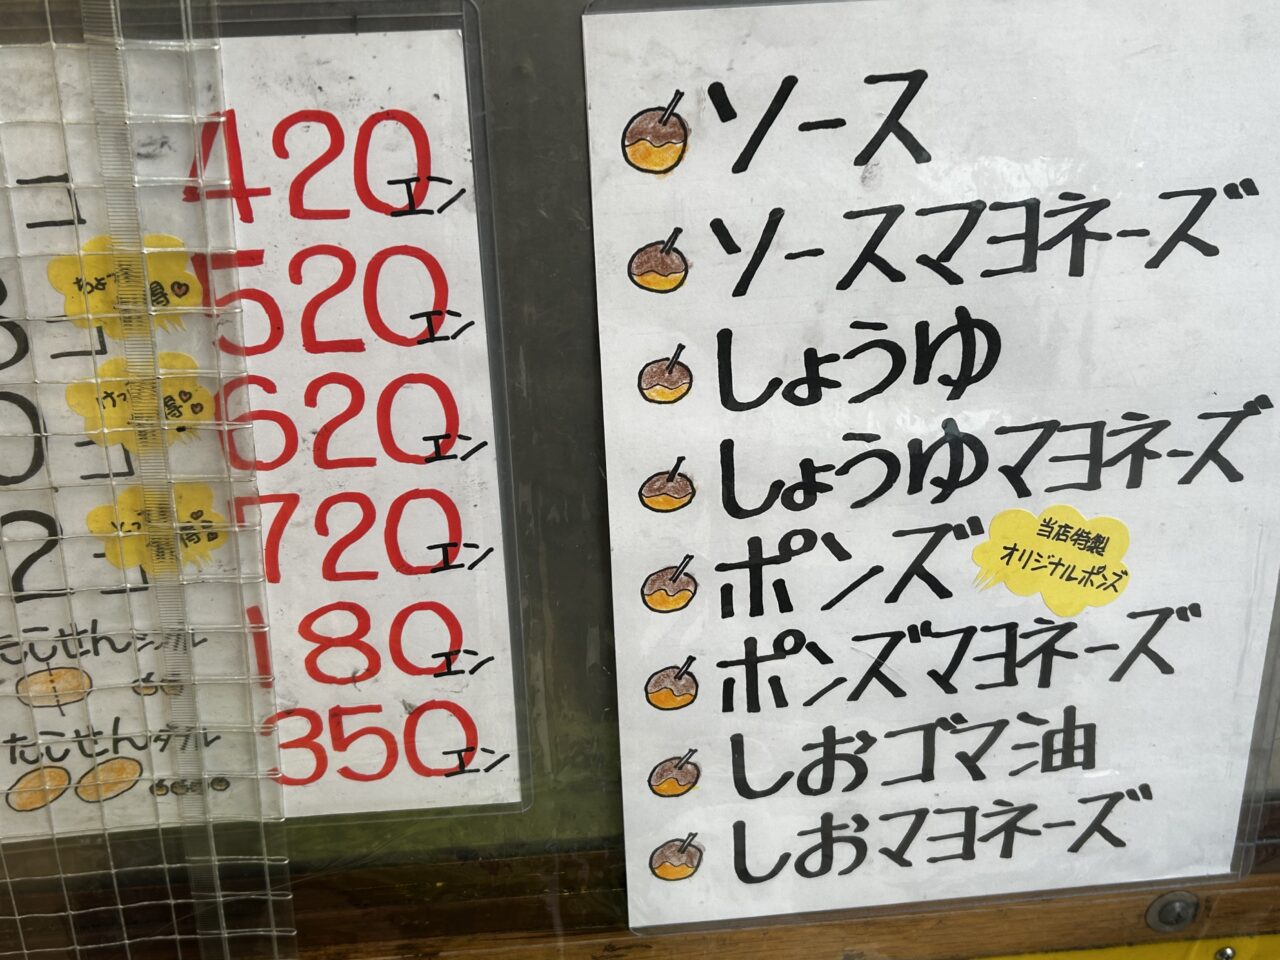 コ 420エン
520エン
620エン
2コ 720エン
たこせんシングル 180エン
たこせんダブル 350エン
ソース
ソースマヨネーズ
しょうゆ
しょうゆマヨネーズ
ポンズ
当店特製
オリジナルポンズ
ポンズマヨネーズ
しおゴマ油
しおマヨネーズ